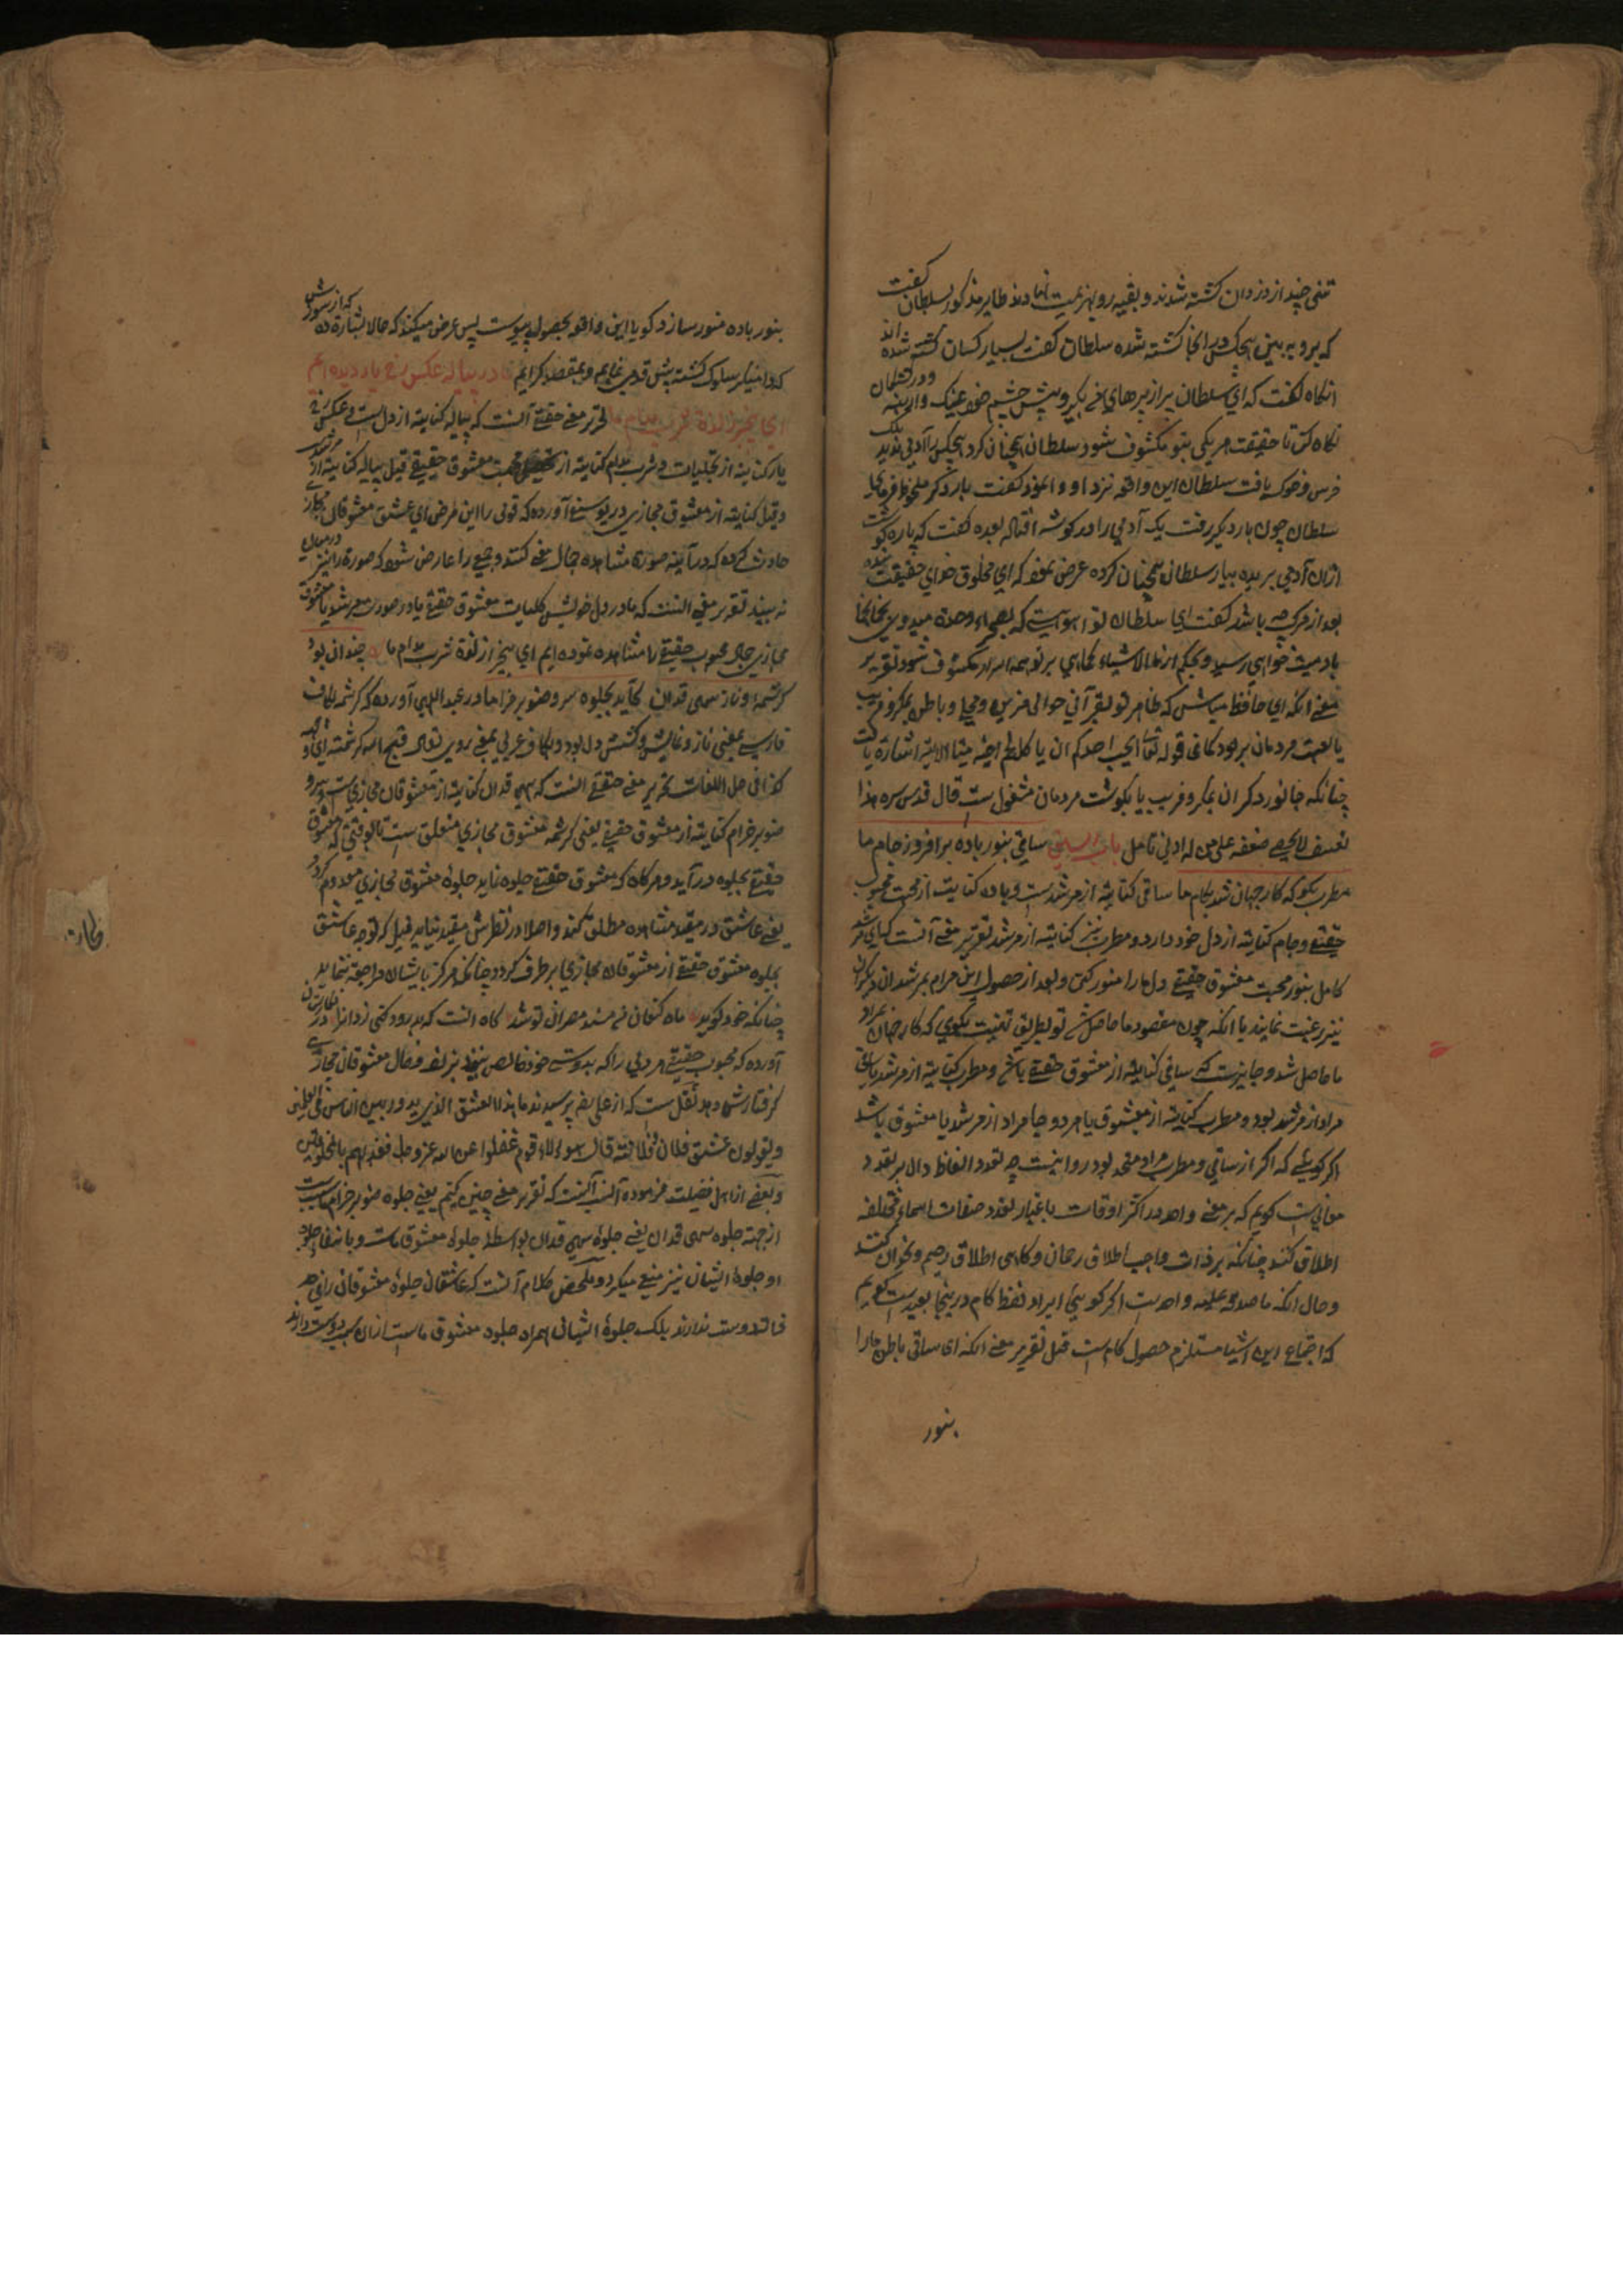 تنی چند از دزدان کشته شدند و بقیه رو بهزیمت نهادند طایر مذکور بسلطان گفت
که برو به بین هیچکس در اینجا کشته شده سلطان گفت بسیار کسان کشته شده اند
انکاه گفت که ای سلطان پر از پرهای من بگیر و پیش چشم خود عینک و در کشتکان
نکاه کن تا حقیقت هر یکی بتو مکشوف شود سلطان همچنان کرد هیچکس را آدمی ندید بلکه
خرس و خوک یافت سلطان این واقعه نزد او وا نمود گفت بار دکر ملاحظه فرمای
سلطان چون بار دیکر رفت یک آدمی را در کوشه افتاده بعده گفت که پاره کوشت
ازان آدمی بریده بیار سلطان همچنان کرده عرض نمود که ای مخلوق خدای حقیقت
بعد از مرک چه باشد گفت ای سلطان تو
باد میت خواهی رسید و بحکم ارنا الاشیاء کماهی بر تو همه اسرار مکشوف شود تقریر
معنی انکه ای حافظ میباش که ظاهر تو بقرآن خوانی مزین و محلی و باطن بمکر و فریب
یا لعنت مردمان بر بود کما فی قوله تعالی ایحب احدکم ان یاکل لحم اخیه میتا الایة اشارة
چنانکه جانور دکران بمکر و فریب یا بکوشت مردمان مشغول ست قال قدس سره هذا
تعسف لا یخفی ضعفه علی من له ادنی تامل ساقی بنور باده برافروز جام ما
مطرب بکو که کار جهان شد بکام ما ساقی کنایته از مرشد ست و باده کنایت از محبت محبوب
حقیقی و جام کنایته از دل خود دارد و مطرب نیز کنایته از مرشد تقریر معنی آنست که ای مرشد
کامل بنور محبت معشوق حقیقی دل ما را منور کنی و بعد از حصول این مرام بمرشدان دیکران
نیز رغبت نمایند یا انکه چون مقصود ما حاصل شد تو بطریق تهنیت بکوی که کار جهان بمراد
ما حاصل شد و جایز ست که ساقی کنایته از معشوق حقیقی باشد و مطرب کنایته از مرشد یا ساقی
مراد از مرشد بود و مطرب کنایته از معشوق یا هر دو جا مراد از مرشد یا معشوق باشد
اکر کویی که اکر از ساقی و مطرب مراد متحد بود روا نیست چه تعدد الفاظ دال بر تعدد
معانی ست کویم که بر معنی واحد در اکثر اوقات باعتبار تعدد صفات اسماء مختلفه
اطلاق کنند چنانکه بر ذات واجب اطلاق رحمان و کاهی اطلاق رحیم و نحو ان کنند
و حال انکه ما صدق علیه واحد ست اکر کویی ایراد لفظ کام درینجا بعید ست کویم
که اجتماع این اشیا مستلزم حصول کام ست قیل تقریر معنی انکه ای ساقی باطن ما را
بنور
بنور باده منور سازد کویا این واقعه بحصول پیوست پس عرض میکند که حالا بشارة ده که از سوزش
کدامنیکر سلوک کشته پیش قدمی نمایم و بمقصد کرایم ما در پیاله عکس رخ یار دیده ایم
ای بیخبر ز لذة شرب مدام ما تحریر معنی حقیقی آنست که پیاله کنایته از دل ست و عکس رخ
یار کنایته از تجلیات و شرب مدام کنایته از محبت معشوق حقیقی قیل پیاله کنایته از مرشد
و قیل کنایته از معشوق مجازی در یوسفی آورده که قومی را این مرض ای عشق معشوقان مجازی
حادث کرده که در آینه صورة مشاهده جمال معنی کنند و جمعی را عارض شود که صورة را نیز درمیان
نه بیند تقریر معنی انست که ما در دل خویش تجلیات معشوق حقیقی یا در صورت مرشد یا معشوق
مجازی جمال محبوب حقیقی را مشاهده نموده ایم ای بیخبر از لذة شرب مدام ما چندان بود
کرشمه و ناز سهی قدان کاید بجلوه سرو صنوبر خرام ما در عبد اللهی آورده که کرشمه بکاف
فارسی بمعنی ناز و نمایش و کشش دل بود و بکاف عربی بمعنی روی
کذا فی حل اللغات تحریر معنی حقیقی انست که سهی قدان کنایته از معشوقان مجازی ست و سرو
صنوبر خرام کنایته از معشوق حقیقی یعنی کرشمه معشوق مجازی متعلق ست تا بوقتی که معشوق
حقیقی بجلوه درآید و هرکاه که معشوق حقیقی جلوه نماید جلوهٔ معشوق مجازی معدوم کردد
یعنی عاشق در مقید مشاهده مطلق کند و اصلا در نظرش مقید نیاید قیل که توجه عاشق
بجلوه معشوق حقیقی از معشوقان مجازی برطرف کردد چنانکه هرکز بایشان مراجعة ننماید
چنانکه خود کوید ماه کنعانی من مسند مصر ان تو شد کاه انست که بدرود کنی زندانرا در
آورده که محبوب حقیقی هر دلی را که بدوستی خود خالص نبیند بزلف و خال معشوقان مجازی
کرفتار شود نقل ست که از علی پرسیدند ما هذا العشق الذی یدور بین الناس
و یقولون عشق فلان فلانة قال هولاء قوم غفلوا عن الله عز و جل فعذبهم بالمخلوقین
و بعضی از اهل فضیلت فرموده آنست که تقریر معنی چنین کنیم یعنی جلوه صنوبر خرام ماست
از جهة جلوه سهی قدان یعنی جلوهٔ سهی قدان بواسطهٔ جلوهٔ معشوق ماست و بانتفاء جلوه
او جلوهٔ ایشان نیز منتفی میکردد و ملخص کلام آنست که عاشقان جلوهٔ معشوقان
دوست ندارند بلکه جلوهٔ ایشان همراه جلوه معشوق ماست ازان سبب دوست دارند